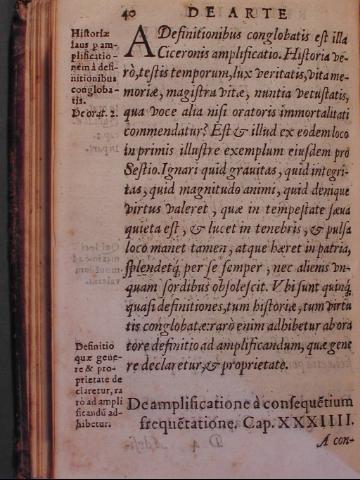 40 DE ARTE
Historiæ
laus p am-
plificatio-
nem à defi-
nitionibus
congloba-
tis.
De orat. 2.
A Definitionibus conglobatis est illa
Ciceronis amplificatio. Historia ve-
rò, testis temporum, lux veritatis, vita me-
moriæ, magistra vitæ, nuntia vetustatis,
qua voce alia nisi oratoris immortalitati
commendatur? Est & illud ex eodem loco
in primis illustre exemplum eiusdem pro
Sestio. Ignari quid grauitas, quid integri-
tas, quid magnitudo animi, quid denique
virtus valeret, quæ in tempestate sæua
quieta est, & lucet in tenebris, & pulsa
loco manet tamen, atque hæret in patria,
splendetq́ per se semper, nec alienis vn-
quam sordibus obsolescit. Vbi sunt quinq́
quasi definitiones, tum historiæ, tum virtu
tis conglobatæ: rarò enim adhibetur ab ora
tore definitio ad amplificandum, quæ gene
re declaretur, & proprietate.
Definitio
quæ gene-
re & pro-
prietate de
claretur, ra
rò ad ampli
ficandũ ad-
hibetur.
De amplificatione à consequẽtium
frequẽtatione. Cap. XXXIIII.
A con-